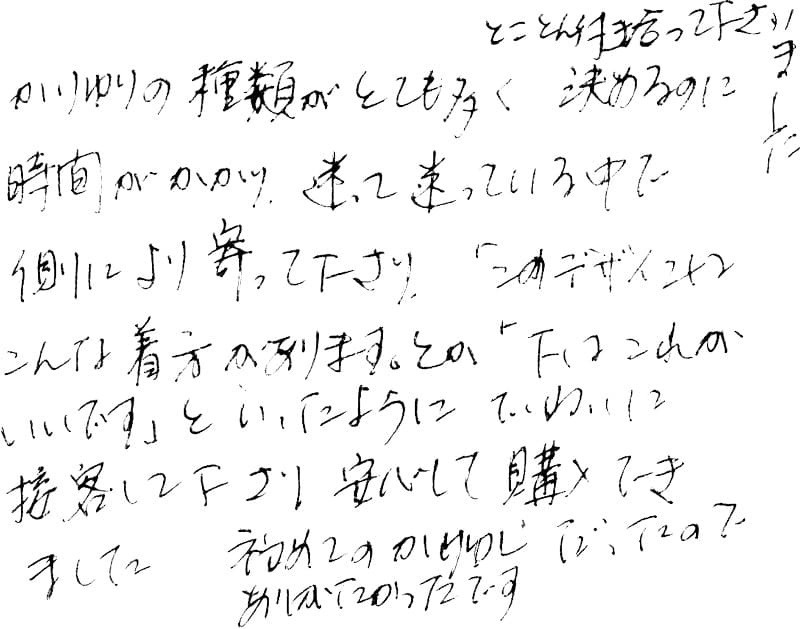 かりゆりの種類がとても多く 決めるのに
時間がかかり、迷って迷っている中で
側により寄って下さり、「このデザインは
こんな着方があります。とか「下はこれが
いいです」といったように ていねいに
接客して下さり 安心して購入でき
ました 初めてのかりゆしだったので
ありがたかったです
とことん付き合って下さり
ました